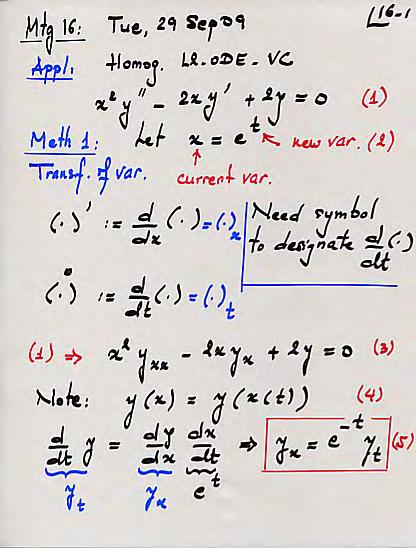 Mtg 16: Tue, 29 Sep 09
16-1
Appl: Homog. L2-ODE-VC
x² y'' - 2xy' + 2y = 0 (1)
Meth 1: Let x = e^t new var. (2)
Transf. of var. current var.
(·)' := d/dx (·) = (·)_x
Need symbol
to designate d/dt (·)
(·)˚ := d/dt (·) = (·)_t
(1) ⇒ x² y_xx - 2x y_x + 2y = 0 (3)
Note: y(x) = y(x(t)) (4)
d/dt y = dy/dx dx/dt ⇒ y_x = e^-t y_t (5)
y_t y_x e^t